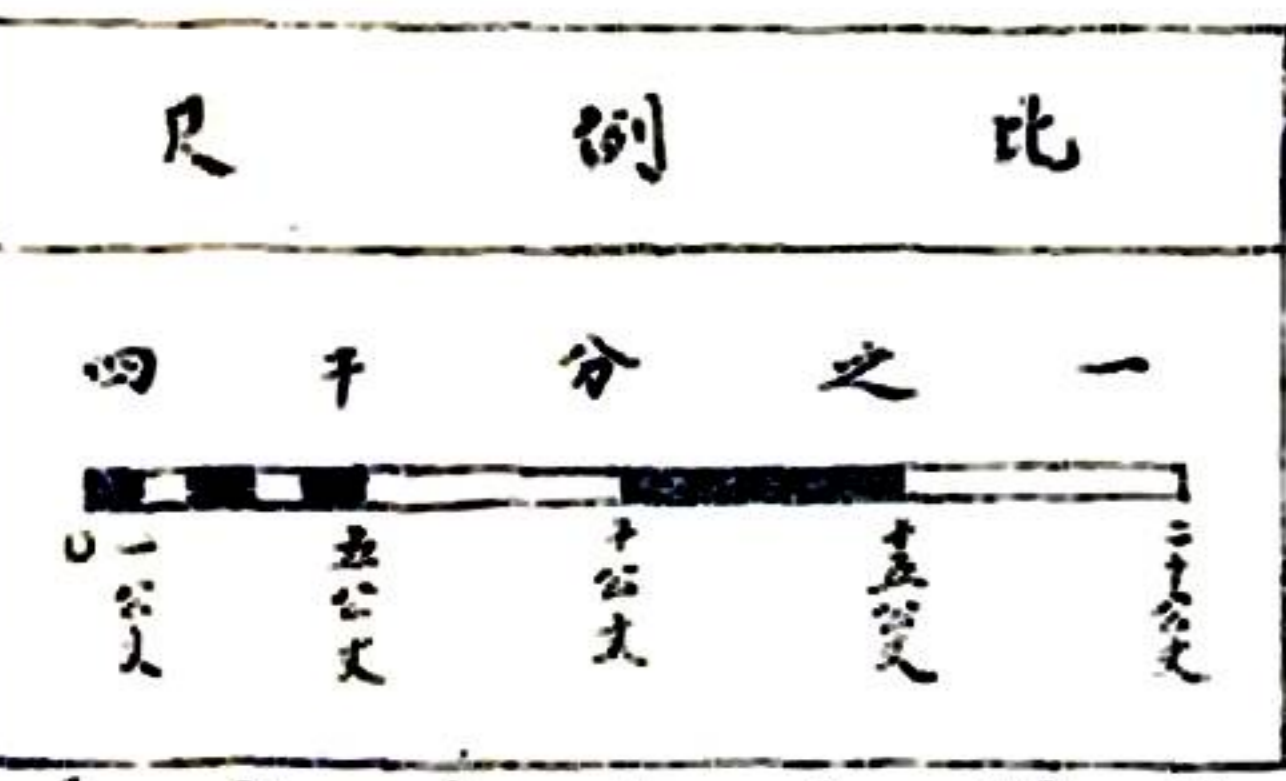 比例尺
四千分之一
0
一公丈
五公丈
十公丈
十五公丈
二十公丈